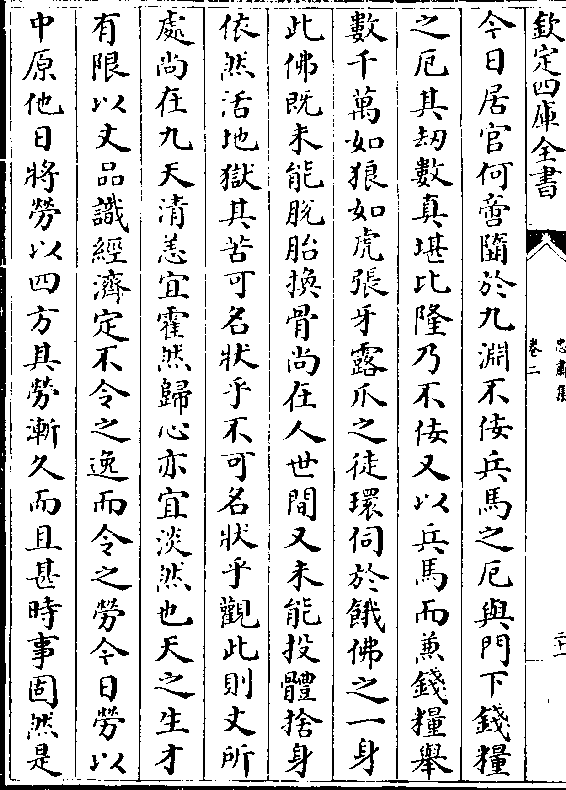 欽定四庫全書
忠肅集
卷二
二十一
今日居官何啻隨於九淵不佞兵馬之厄與門下錢糧
之厄其刼數真堪比隆乃不佞又以兵馬而兼錢糧舉
數千萬如狼如虎張牙露爪之徒環伺於餓佛之一身
此佛既未能脫胎換骨尚在人世間又未能投體捨身
依然活地獄其苦可名狀乎不可名狀乎觀此則丈所
處尚在九天清恙宜霍然歸心亦宜淡然也天之生才
有限以丈品識經濟定不令之逸而令之勞今日勞以
中原他日將勞以四方其勞漸久而且甚時事固然是